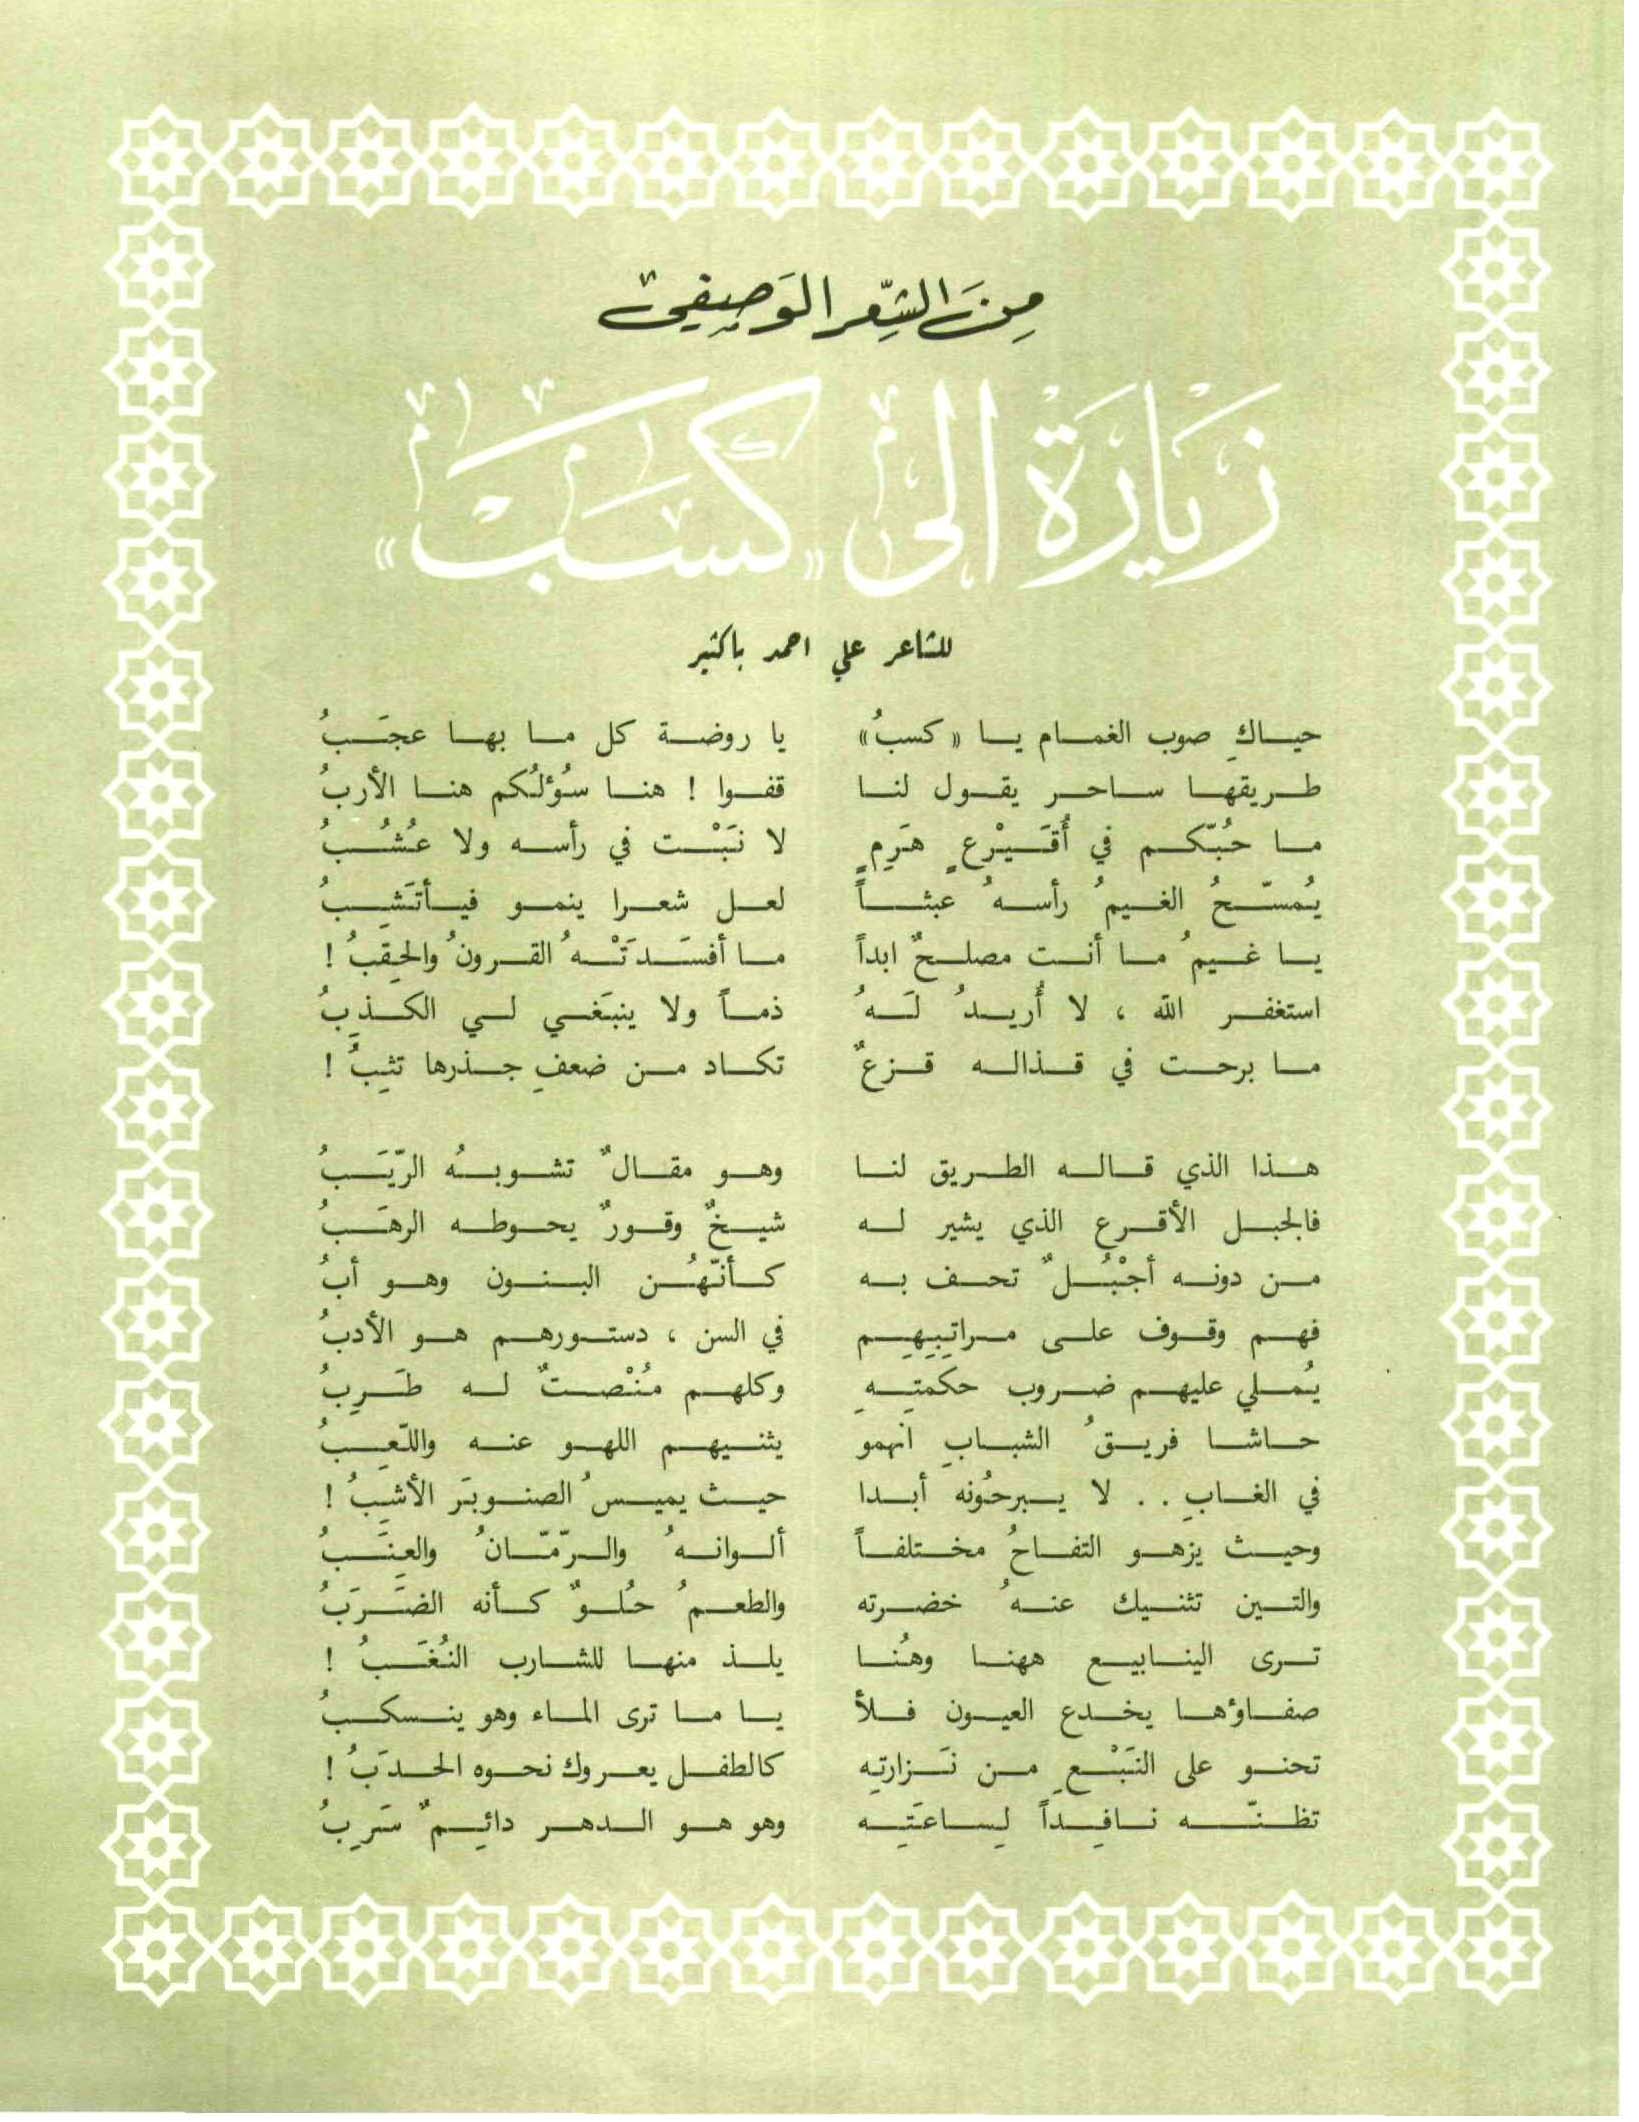 مِنَ الشِّعر الوَصِيفي
زيَارَة الى «كَسَبْ»
للشاعر علي احمد باكثير
حياكِ صوب الغمام يا «كسبُ» يا روضة كل ما بها عجَبُ
طريقها ساحر يقول لنا قفوا ! هنا سُؤلُكم هنا الأربُ
ما حُبّكم في أُقَيْرعٍ هَرِمٍ لا نَبْت في رأسه ولا عُشُبُ
يُمسّحُ الغيمُ رأسهُ عبثاً لعل شعرا ينمو فيأتَشِبُ
يا غيمُ ما أنت مصلحٌ ابداً ما أفسَدَتْهُ القرونُ والحِقبُ !
استغفر الله ، لا أُريدُ لَهُ ذماً ولا ينبَغي لي الكذبِ
ما برحت في قذاله قزعٌ تكاد من ضعفِ جذرها تثِبُ !
هذا الذي قاله الطريق لنا وهو مقالٌ تشوبهُ الرّيَبُ
فالجبل الأقرع الذي يشير له شيخٌ وقورٌ يحوطه الرهَبُ
من دونه أجْبُلٌ تحف به كأنّهُن البنون وهو أبُ
فهم وقوف على مراتبِهِم في السن ، دستورهم هو الأدبُ
يُملي عليهم ضروب حكمتِهِ وكلهم مُنْصتٌ له طَرِبُ
حاشا فريقُ الشبابِ انهمو يثنيهم اللهو عنه واللّعِبُ
في الغابِ . . لا يبرحُونه أبدا حيث يميسُ الصنوبَر الأشِبُ !
وحيث يزهو التفاحُ مختلفاً ألوانهُ والرّمّانُ والعِنَبُ
والتين تثنيك عنهُ خضرته والطعمُ حُلوٌ كأنه الضَرَبُ
ترى الينابيع ههنا وهُنا يلذ منها للشارب النُغَبُ !
صفاؤها يخدع العيون فلأ يا ما ترى الماء وهو ينسكبُ
تحنو على النَبْعِ من نَزارتِه كالطفل يعروك نحوه الحدَبُ !
تظنّه نافِداً لِساعَتِه وهو هو الدهر دائِمٌ سَرِبُ